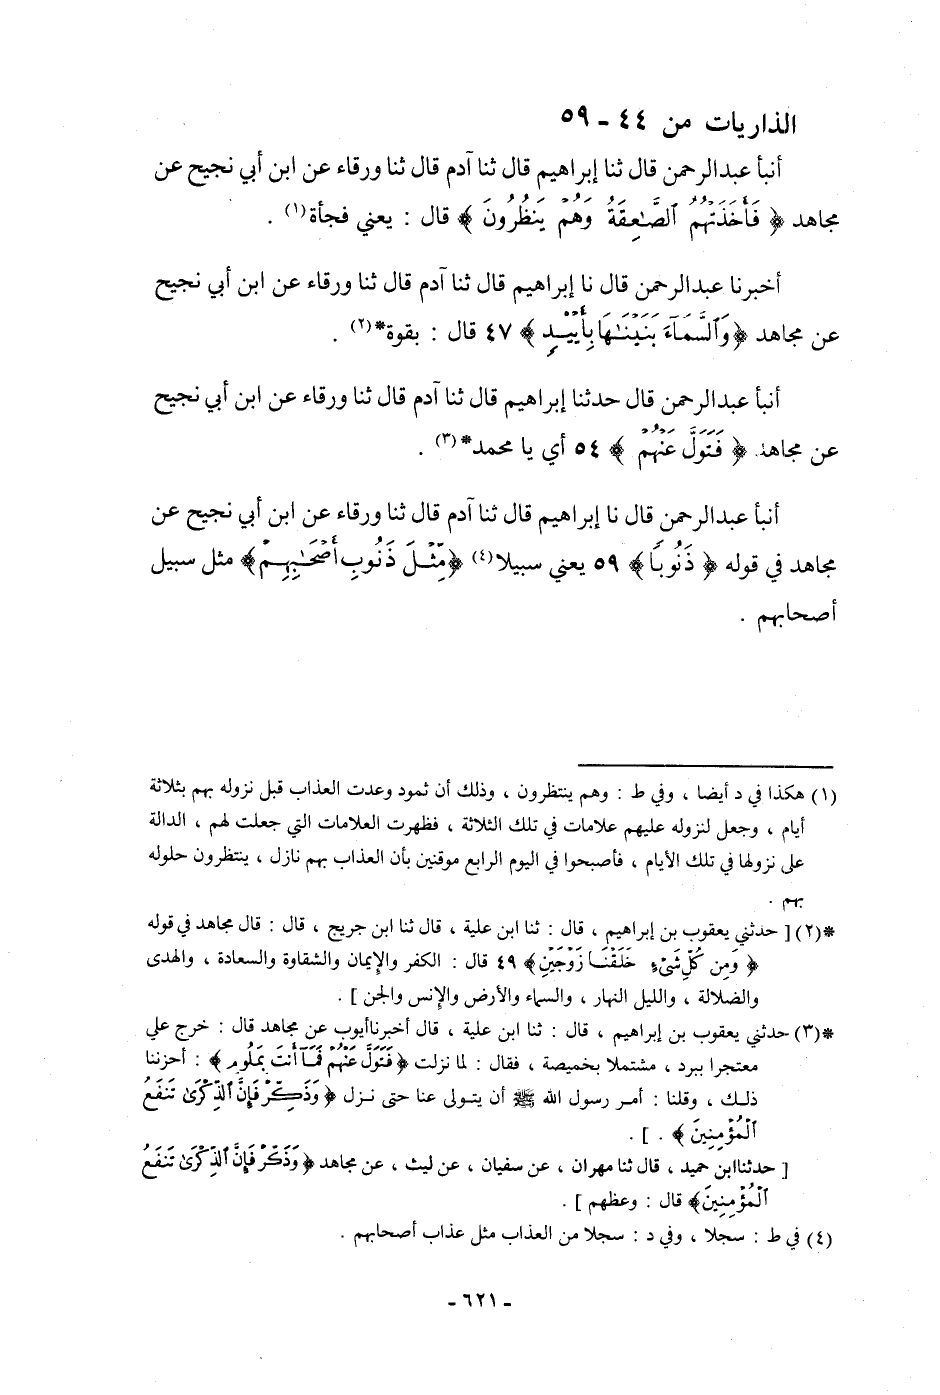 الذاريات من ٤٤ ـ ٥٩
أنبأ عبدالرحمن قال ثنا إبراهيم قال ثنا آدم قال ثنا ورقاء عن ابن أبي نجيح عن
مجاهد ﴿ فَأَخَذَتْهُمُ ٱلصَّٰعِقَةُ وَهُمْ يَنظُرُونَ ﴾ قال : يعني فجأة(١) .
أخبرنا عبدالرحمن قال نا إبراهيم قال ثنا آدم قال ثنا ورقاء عن ابن أبي نجيح
عن مجاهد ﴿وَٱلسَّمَآءَ بَنَيْنَٰهَا بِأَيْيْدٍ ﴾ ٤٧ قال : بقوة*(٢) .
أنبأ عبدالرحمن قال حدثنا إبراهيم قال ثنا آدم قال ثنا ورقاء عن ابن أبي نجيح
عن مجاهد ﴿ فَتَوَلَّ عَنْهُمْ ﴾ ٥٤ أي يا محمد*(٣) .
أنبأ عبدالرحمن قال نا إبراهيم قال ثنا آدم قال ثنا ورقاء عن ابن أبي نجيح عن
مجاهد في قوله ﴿ ذَنُوبًا ﴾ ٥٩ يعني سبيلا(٤) ﴿مِّثْلَ ذَنُوبِ أَصْحَٰبِهِمْ﴾ مثل سبيل
أصحابهم .
(١) هكذا في د أيضا ، وفي ط : وهم ينتظرون ، وذلك أن ثمود وعدت العذاب قبل نزوله بهم بثلاثة
أيام ، وجعل لنزوله عليهم علامات في تلك الثلاثة ، فظهرت العلامات التي جعلت لهم ، الدالة
على نزولها في تلك الأيام ، فأصبحوا في اليوم الرابع موقنين بأن العذاب بهم نازل ، ينتظرون حلوله
بهم .
*(٢) [ حدثني يعقوب بن إبراهيم ، قال : ثنا ابن علية ، قال ثنا ابن جريج ، قال : قال مجاهد في قوله
﴿ وَمِن كُلِّ شَىْءٍ خَلَقْنَا زَوْجَيْنِ﴾ ٤٩ قال : الكفر والإيمان والشقاوة والسعادة ، والهدى
والضلالة ، والليل النهار ، والسماء والأرض والإنس والجن ] .
*(٣) حدثني يعقوب بن إبراهيم ، قال : ثنا ابن علية ، قال أخبرنا أيوب عن مجاهد قال : خرج علي
معتجرا ببرد ، مشتملا بخميصة ، فقال : لما نزلت ﴿فَتَوَلَّ عَنْهُمْ فَمَآ أَنتَ بِمَلُومٍ ﴾ : أحزننا
ذلك ، وقلنا : أمر رسول الله ﷺ أن يتولى عنا حتى نزل ﴿ وَذَكِّرْ فَإِنَّ ٱلذِّكْرَىٰ تَنفَعُ
ٱلْمُؤْمِنِينَ ﴾ . ] .
[ حدثنا ابن حميد ، قال ثنا مهران ، عن سفيان ، عن ليث ، عن مجاهد ﴿ وَذَكِّرْ فَإِنَّ ٱلذِّكْرَىٰ تَنفَعُ
ٱلْمُؤْمِنِينَ﴾ قال : وعظهم ] .
(٤) في ط : سجلا ، وفي د : سجلا من العذاب مثل عذاب أصحابهم .
ـ ٦٢١ ـ